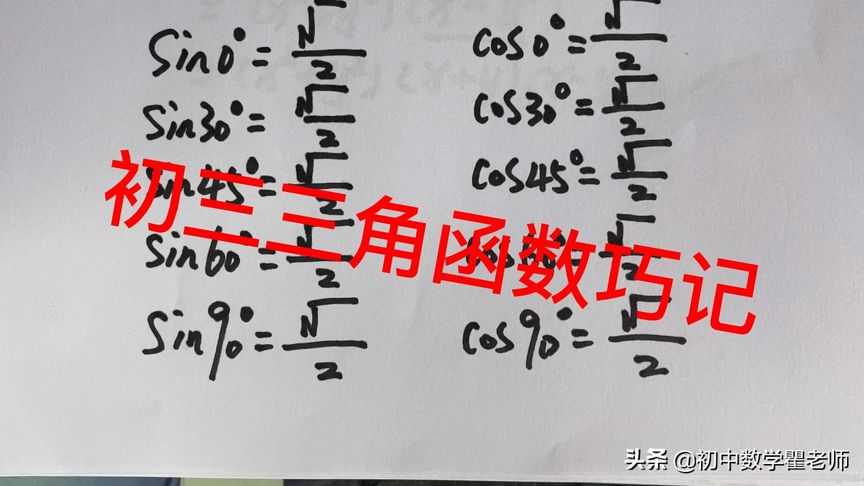 sin0°=√/2 cos0°=√/2
sin30°=√/2 cos30°=√/2
sin45°=√/2 cos45°=√/2
sin60°=√/2 cos60°=√/2
sin90°=√/2 cos90°=√/2
初三三角函数巧记
头条 @初中数学瞿老师